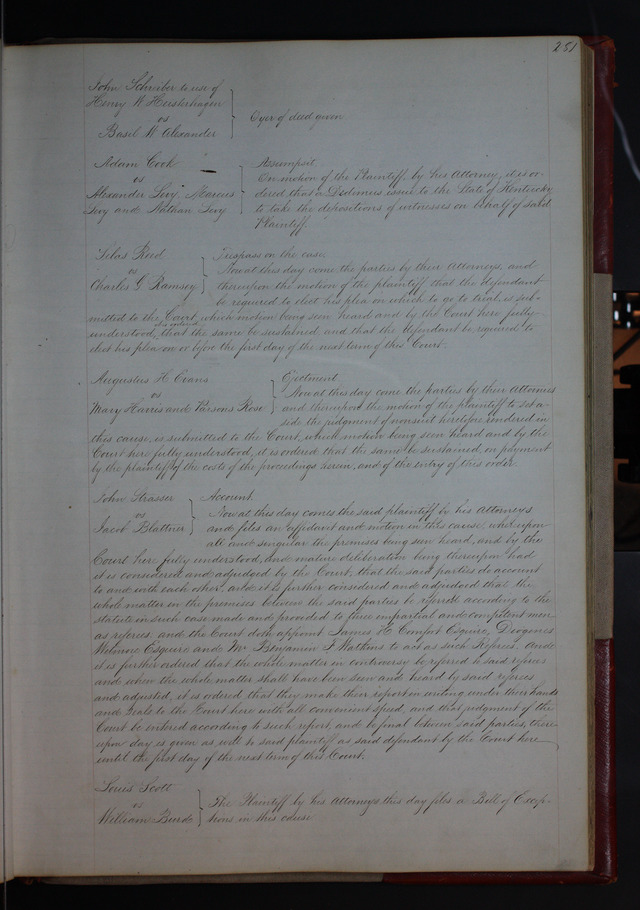 281
John Schreiber to use of
Henry W Hersterhagen
vs
Basil W Alexander
Oyer of deed given
Adam Cook
vs
Alexander Levy, Marcus
Levy and Nathan Levy
Assumpsit.
On motion of the Plaintiff, by his Attorney, it is or-
dered that a Dedimus issue to the State of Kentucky
to take the depositions of witnesses on behalf of said
Plaintiff.
Silas Reed
vs
Charles G Ramsey
Trespass on the case.
Now at this day come the parties by their Attorneys, and
thereupon the motion of the plaintiff that the defendant
be required to elect his plea on which to go to trial, is sub-
mitted to the Court, which motion being seen heard and by the Court here fully
understood, it is ordered that the same be sustained and that the defendant be required to
elect his plea on or before the first day of the next term of this Court.
Augustus H Evans
vs
Mary Harris and Parsons Rose
Ejectment
Now at this day come the parties by their Attornies
and thereupon the motion of the plaintiff to set a-
side the judgment of nonsuit heretofore rendered in
this cause, is submitted to the Court, which motion being seen heard and by the
Court here fully understood, it is ordered that the same be sustained, on payment
by the plaintiff of the costs of the proceedings herein, and of the entry of this order.
John Strasser
vs
Jacob Blattner
Account.
Now at this day comes the said plaintiff by his Attorneys
and files an affidavit and motion in this cause, whereupon
all and singular the premises being seen heard, and by the
Court here fully understood, and mature deliberation being thereupon had
it is considered and adjudged by the Court, that the said parties do account
to and with each other, and it is further considered and adjudged that the
whole matter in the premises between the said parties be referred according to the
statute in such case made and provided to three impartial and competent men
as referees and the Court doth appoint James H Comfort Esquire, Diogenes
Wetmore Esquire and Mr Benjamin F Watkins to act as such Referees. And
it is further ordered that the whole matter in controversy be referred to said referees
and when the whole matter shall have been seen and heard by said referees
and adjusted, it is ordered that they make their report in writing under their hands
and seals to the Court here with all convenient speed, and that judgment of the
Court be entered according to such report, and be final between said parties, there-
upon day is given as well to said plaintiff as said defendant by the Court here
until the first day of the next term of this Court.
Louis Scott
vs
William Burd
The Plaintiff by his Attorneys this day files a Bill of Excep-
tions in this cause